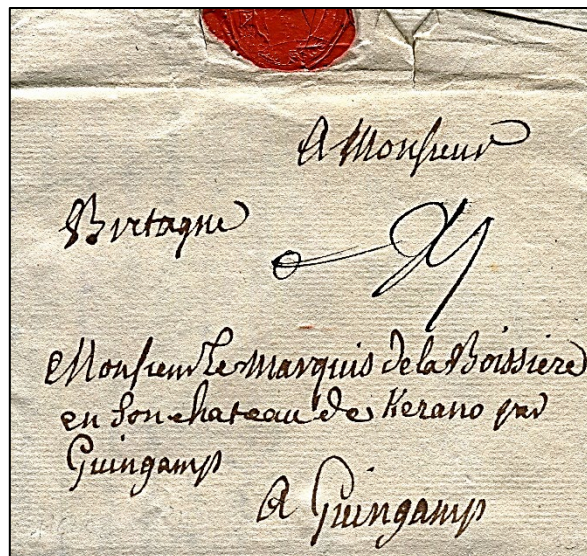 A Monsieur
Bretagne
Monsieur Le Marquis de la Boissiere
en son chateau de Kerano par
Guingamp
A Guingamp